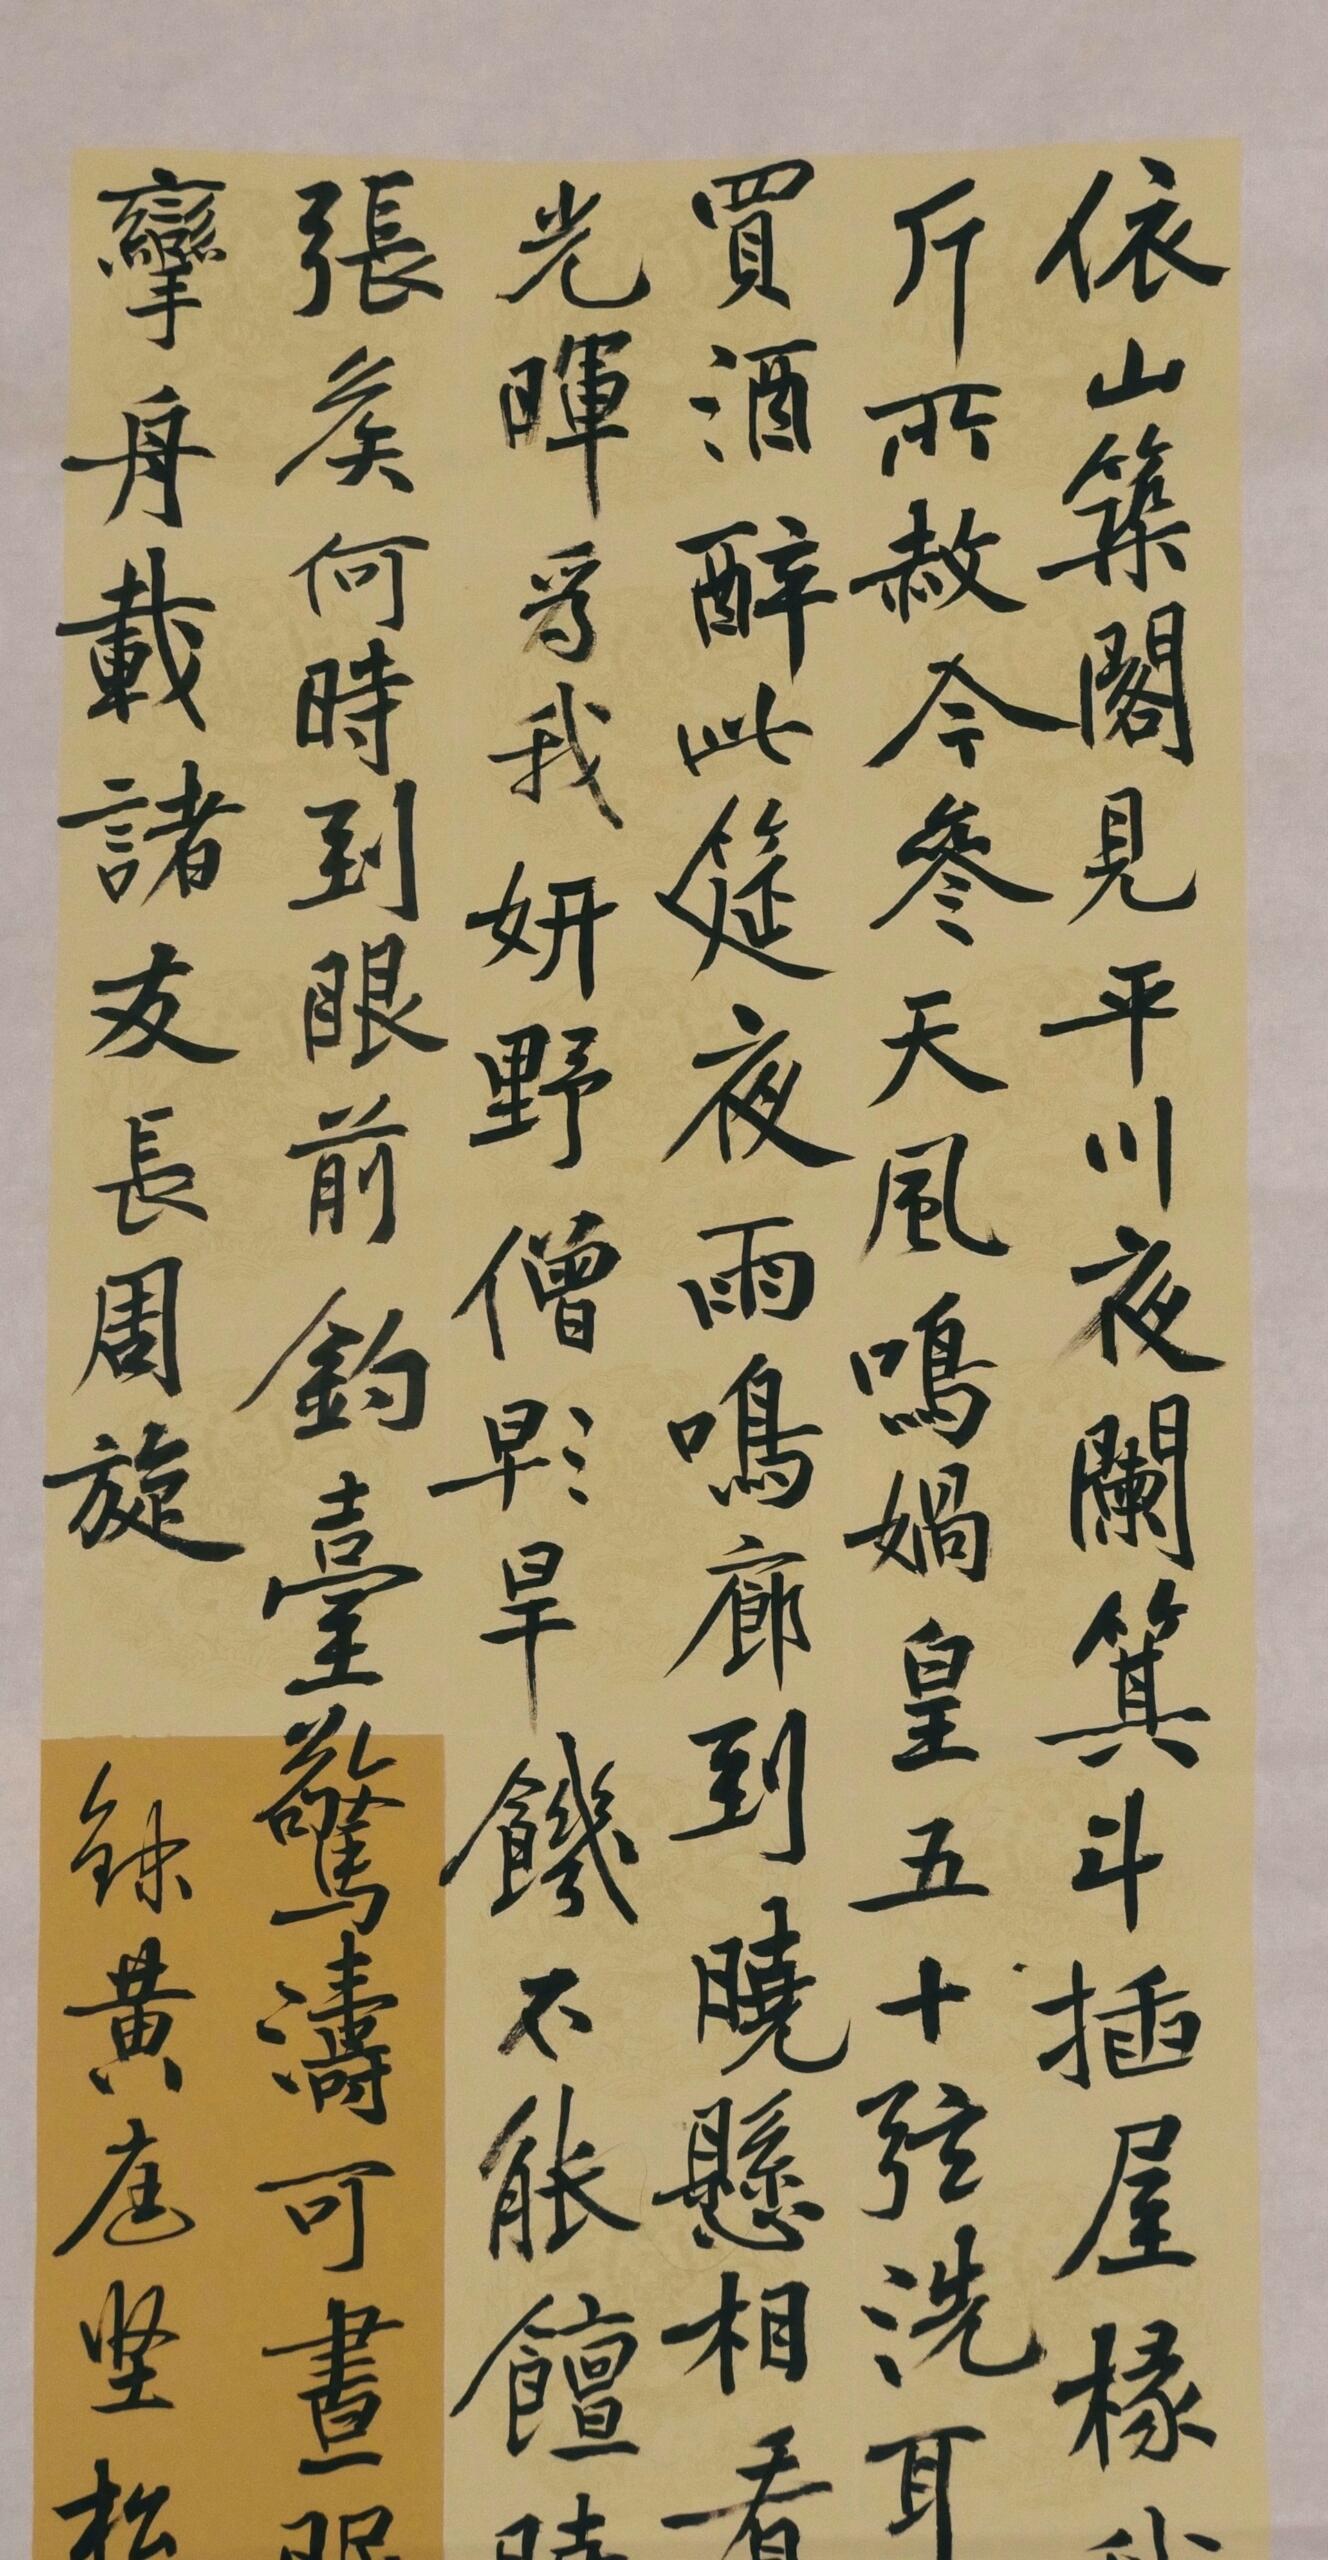 依山築閣見平川夜闌箕斗插屋椽我
斤所赦今參天風鳴媧皇五十弦洗耳
買酒醉此筵夜雨鳴廊到曉懸相看
光暉為我妍野僧早旱饑不能饘曉
張矦何時到眼前釣臺驚濤可晝眠
攣舟載諸友長周旋
錄黃庭堅松